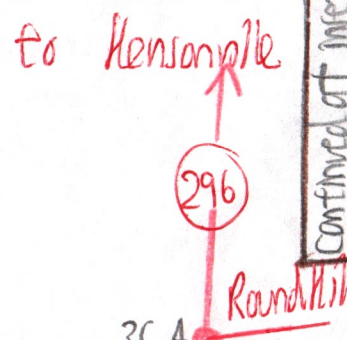 to Hensonville
296
Continued at
Round Hill